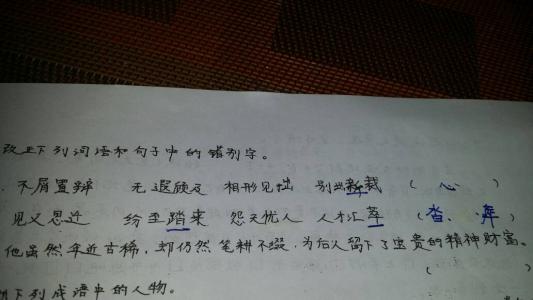 改正下列词语和句子中的错别字。
. 不屑置辩 无遐顾及 相形见拙 别出新裁 ( 心 )
见义思迁 纷至踏来 怨天忧人 人才汇萃 ( 沓、 )
他虽然年近古稀,却仍然笔耕不缀,为后人留下了宝贵的精神财富。
( )
下列成语中的人物。